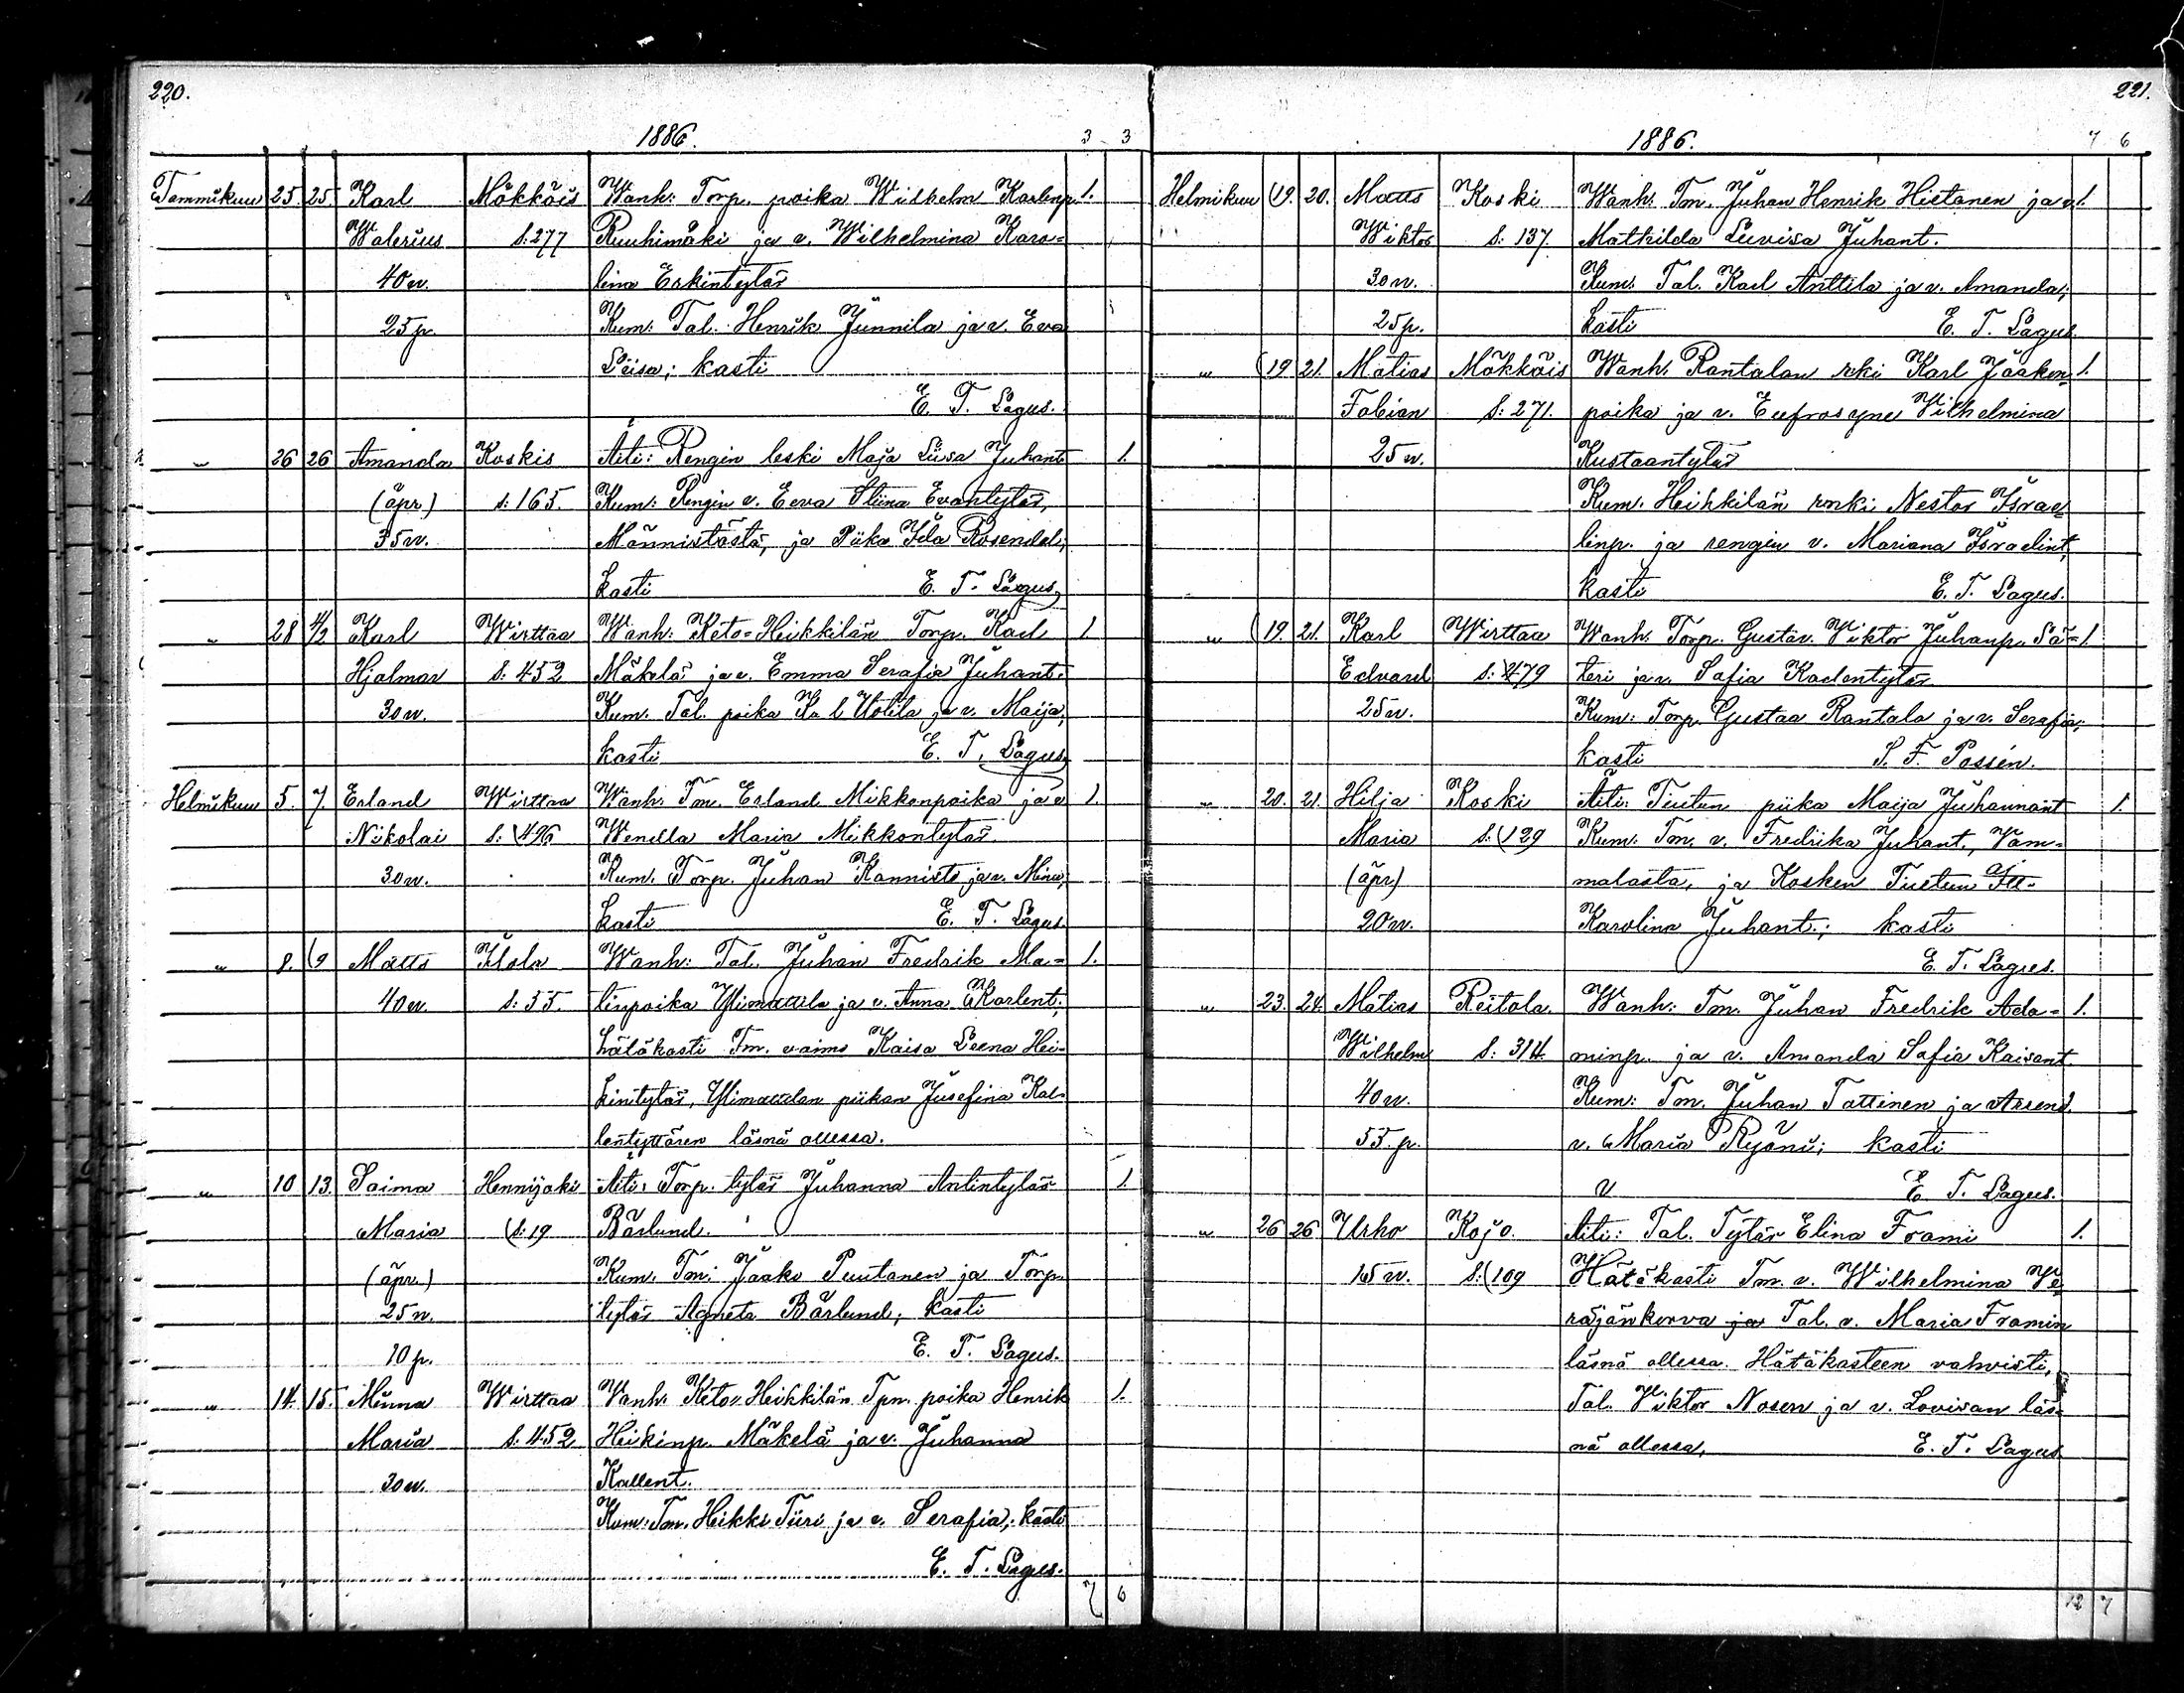 220.
1886. 3 3
Tammikuu 25. 25. Karl Mökköis Wanh: Torp. poika Wilhelm Karlenp. 1.
Walerius S: 277 Ruuhimäki ja v. Wilhelmina Karo=
40 w. lina Erkintytär
25 p. Kum: Tal. Henrik Junnila ja v. Eva
Liisa; kasti
E. T. Lagus.
" 26 26 Amanda Koskis Äiti: Rengin leski Maja Liisa Juhant. 1.
(äpr) s: 165. Kum: Rengin v. Eeva Stiina Evantytär,
35 w. Männistöstä, ja Piika Ida Rosendal;
kasti E. T. Lagus,
" 28 4/2 Karl Wirttaa Wanh: Keto=Heikkilän Torp. Karl 1
Hjalmar S: 452 Mäkelä ja v. Emma Serafia Juhant.
30 w. Kum. Tal. poika Ka l Uotila ja v. Maija,
kasti E. T. Lagus,
Helmikuu 5. 7. Erland Wirttaa Wanh. Tm. Erland Mikkonpoika ja v 1.
Nikolai S: 496 Wendla Maria Mikkontytär.
30 w. Kum. Torp. Juhan Kannisto ja v. Miina,
kasti E. T. Lagus.
" 8. 9 Matts Ilola Wanh: Tal. Juhan Fredrik Ma= 1.
40 w. S: 55. tinpoika Ylimattila ja v. Anna Karlent;
hätäkasti Tm. vaimo Kaisa Leena Hei=
kintytär, Ylimattilan piikan Jusefina Kal=
lentyttären läsnä ollessa.
" 10 13. Saima Hennijoki Äiti, Torp. tytär Juhanna Antintytär 1
Maria S: 19 Bärlund.
(äpr.) Kum. Tm: Jaako Puutanen ja Torp.
25 w. tytär Agneta Bärlund; kasti
10 p. E. T. Lagus.
" 14. 15. Minna Wirttaa Wanh. Keto=Heikkilän Tpn. poika Henrik 1.
Maria S. 452 Heikinp. Mäkelä ja v. Juhanna
30 w. Kallent.
Kum: Tm. Heikki Tiiri ja v. Serafia; kasti
E. T. Lagus.
7 6
221.
1886. 7 6
Helmikuu 19. 20. Matts Koski Wanh. Tm. Juhan Henrik Hietanen ja v. 1.
Wiktor S: 137. Mathilda Luvisa Juhant.
30 w. Kum. Tal. Karl Anttila ja v. Amanda;
25 p. kasti E. T. Lagus.
" 19 21. Matias Mökköis Wanh. Rantalan rki Karl Jaakon= 1.
Fabian S: 271. poika ja v. Eufrosyne Vilhelmina
25 w. Kustaantytär
Kum. Heikkilän renki Nestor Israe=
linp. ja rengin v. Mariana Israelint,
kasti E. T. Lagus.
" 19. 21. Karl Wirttaa Wanh. Torp. Gustav Viktor Juhanp. Sä= 1.
Edvard S: 479 teri ja v. Safia Kadentytär
25 w. Kum: Torp. Gustaa Rantala ja v. Serafia;
kasti S. F. Possén.
" 20. 21. Hilja Koski Äiti: Tiutun piika Maija Juhannant 1.
Maria S: 129 Kum: Tm. v. Fredrika Juhant., Vam=
(äpr) malasta, ja Kosken Tiutun
20 w. Karolina Juhant.; kasti
E. T. Lagus.
" 23. 24. Matias Reitola. Wanh: Tm. Juhan Fredrik Ada= 1.
Wilhelm S: 314. minp. ja v. Amanda Safia Kaisant.
40 w. Kum: Tm. Juhan Tattinen ja
55. p. v. Maria Ryönä; kasti
E T. Lagus.
" 26 26 Urho Kojo. Äiti: Tal. Tytär Elina Frami 1.
15 w. S: 109 Hätäkasti Tm. v. Wilhelmina Ve
räjänkorva ja Tal. v. Maria Framin
läsnä ollessa. Hätäkasteen vahvisti,
Tal. Viktor Nosen ja v. Lovisan läs=
nä ollessa, E. T. Lagus.
12 7